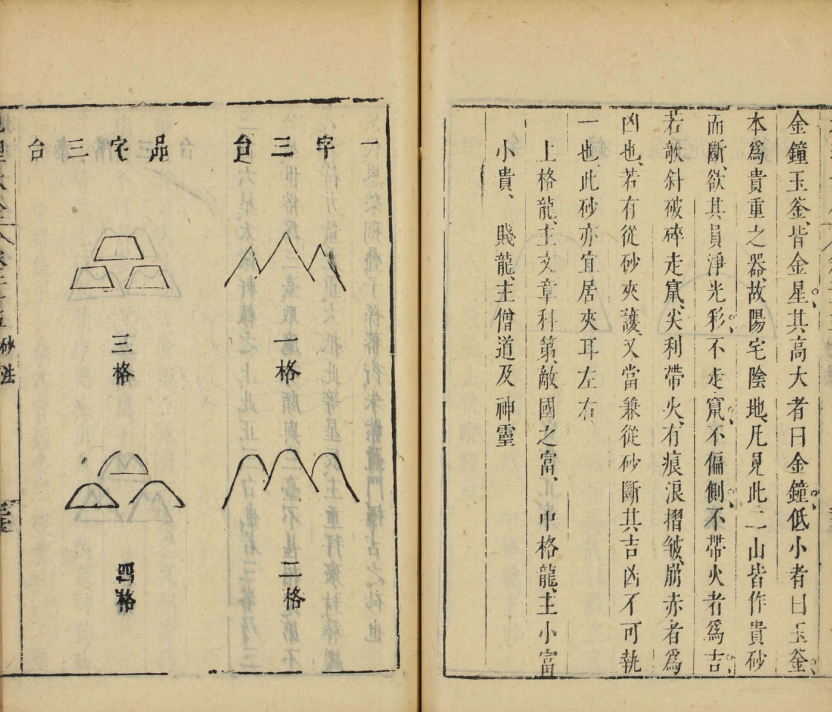 金鐘玉釜、皆金星、其高大者曰金鐘、低小者曰玉釜、
本爲貴重之器、故陽宅陰地、凡見此二山皆作貴砂
而斷、欲其員淨光彩、不走竄、不偏側、不帶火者爲吉、
若欹斜破碎走竄、尖利帶火、有痕浪摺皺、崩赤者爲
凶也、若有從砂夾護、又當兼從砂斷其吉凶、不可執
一也、此砂亦宜居夾耳左右
上格龍、主文章科第、敵國之富、中格龍、主小富
小貴、賤龍、主僧道及神靈
一字三台
一格
二格
品字三台
三格
四格
砂法